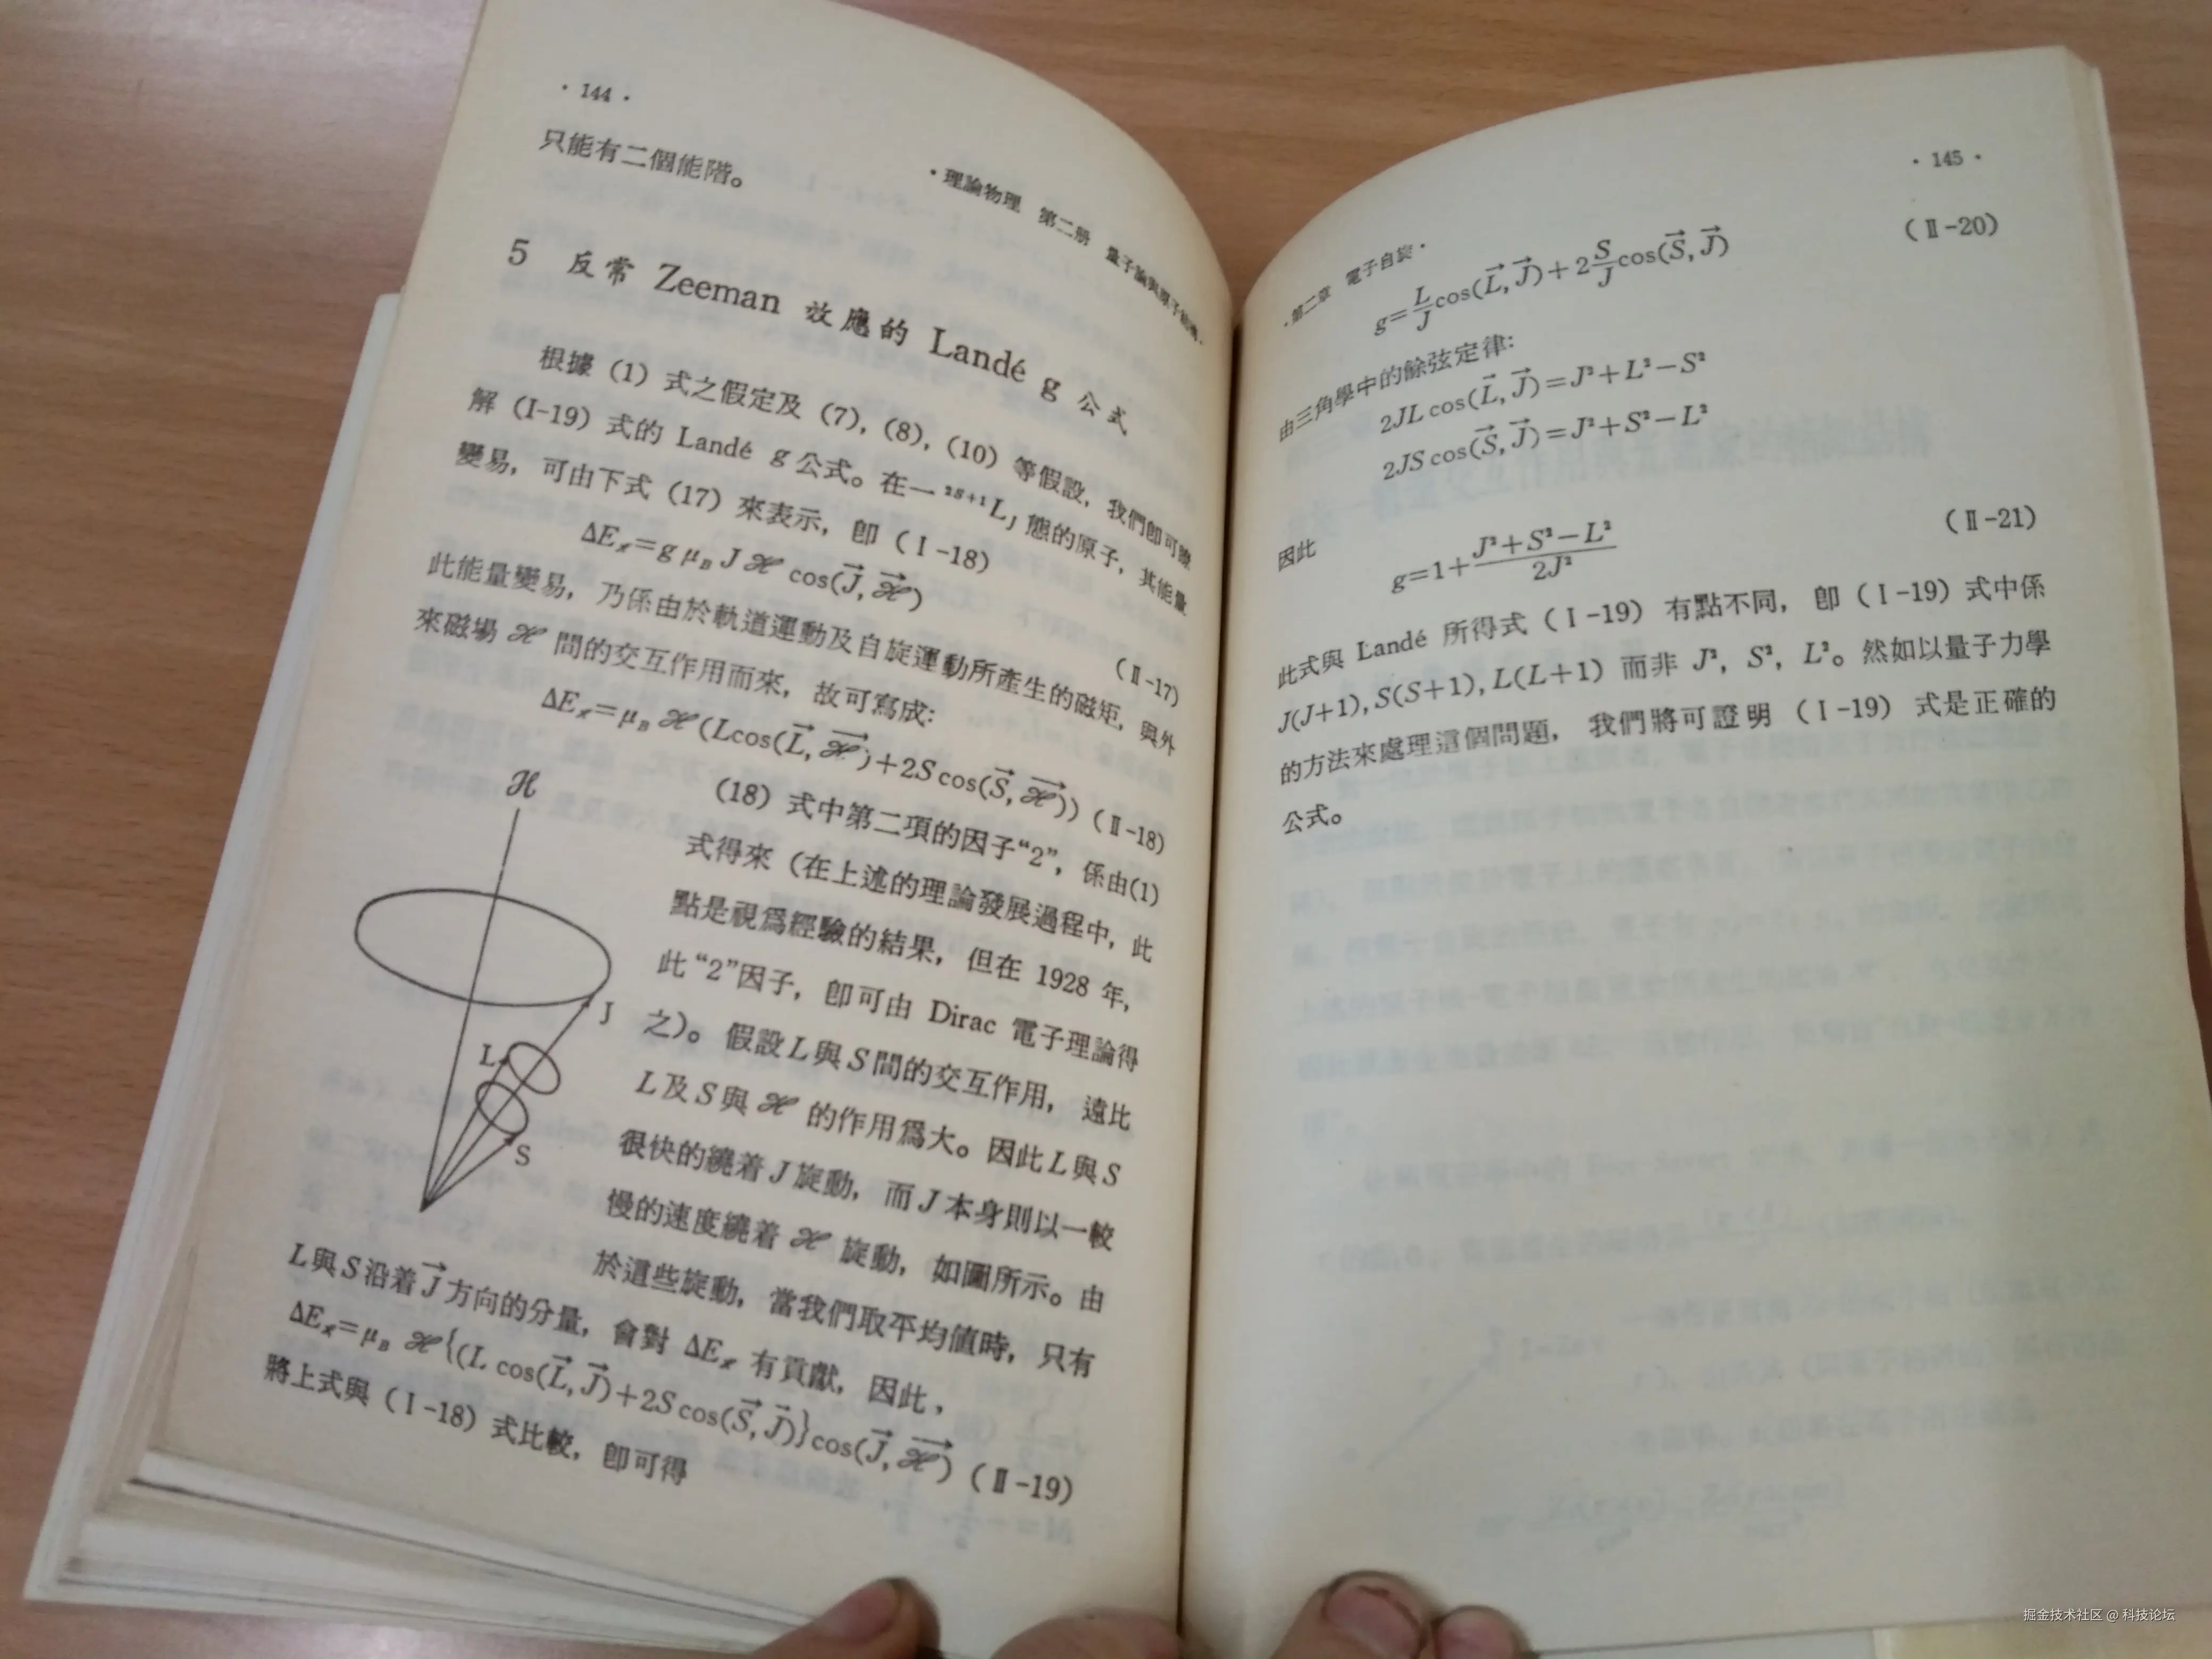 · 144 ·
·理論物理 第二册 量子論與原子結構·
只能有二個能階。
5 反常 Zeeman 效應的 Landé g 公式
根據 (1) 式之假定及 (7), (8), (10) 等假設, 我們卽可瞭
解 (I-19) 式的 Landé g 公式。在一 ²ˢ⁺¹L_J 態的原子, 其能量
變易, 可由下式 (17) 來表示, 卽 (Ⅰ-18)
ΔE_ℋ=g μ_B J ℋ cos(J⃗, ℋ⃗) (Ⅱ-17)
此能量變易, 乃係由於軌道運動及自旋運動所產生的磁矩, 與外
來磁場 ℋ 間的交互作用而來, 故可寫成:
ΔE_ℋ=μ_B ℋ (Lcos(L⃗, ℋ⃗)+2S cos(S⃗, ℋ⃗)) (Ⅱ-18)
(18) 式中第二項的因子“2”, 係由(1)
式得來 (在上述的理論發展過程中, 此
點是視爲經驗的結果, 但在 1928 年,
此 “2”因子, 卽可由 Dirac 電子理論得
之)。假設L與S間的交互作用, 遠比
L及S與 ℋ 的作用爲大。因此L與S
很快的繞着J旋動, 而J本身則以一較
慢的速度繞着 ℋ 旋動, 如圖所示。由
於這些旋動, 當我們取平均值時, 只有
L與S沿着J⃗方向的分量, 會對 ΔE_ℋ 有貢獻, 因此,
ΔE_ℋ=μ_B ℋ{(L cos(L⃗, J⃗)+2S cos(S⃗, J⃗)}cos(J⃗, ℋ⃗) (Ⅱ-19)
將上式與 (Ⅰ-18) 式比較, 卽可得
ℋ
J
L
S
· 145 ·
·第二章 電子自旋·
g=L/J cos(L⃗, J⃗)+2 S/J cos(S⃗, J⃗) (Ⅱ-20)
由三角學中的餘弦定律:
2JL cos(L⃗, J⃗)=J²+L²−S²
2JS cos(S⃗, J⃗)=J²+S²−L²
因此
g=1+(J²+S²−L²)/2J² (Ⅱ-21)
此式與 Landé 所得式 (Ⅰ-19) 有點不同, 卽 (Ⅰ-19) 式中係
J(J+1), S(S+1), L(L+1) 而非 J², S², L²。然如以量子力學
的方法來處理這個問題, 我們將可證明 (Ⅰ-19) 式是正確的
公式。
掘金技术社区 @ 科技论坛